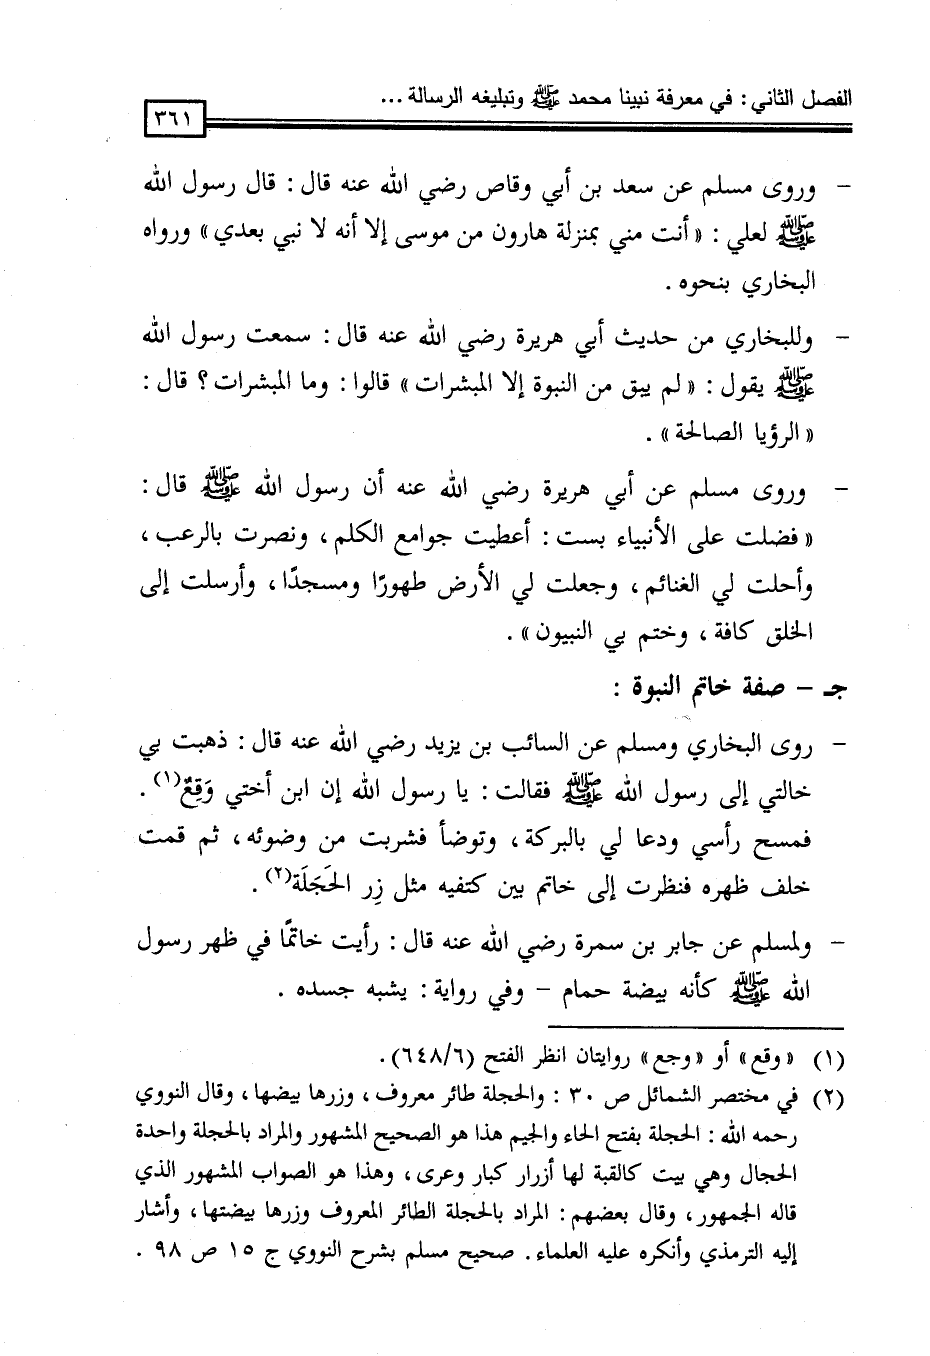 الفصل الثاني : في معرفة نبينا محمد ﷺ وتبليغه الرسالة ...
٣٦١
– وروى مسلم عن سعد بن أبي وقاص رضي الله عنه قال : قال رسول الله
ﷺ لعلي : « أنت مني بمنزلة هارون من موسى إلا أنه لا نبي بعدي » ورواه
البخاري بنحوه .
– وللبخاري من حديث أبي هريرة رضي الله عنه قال : سمعت رسول الله
ﷺ يقول : « لم يبق من النبوة إلا المبشرات » قالوا : وما المبشرات ؟ قال :
« الرؤيا الصالحة » .
– وروى مسلم عن أبي هريرة رضي الله عنه أن رسول الله ﷺ قال :
« فضلت على الأنبياء بست : أعطيت جوامع الكلم ، ونصرت بالرعب ،
وأحلت لي الغنائم ، وجعلت لي الأرض طهورًا ومسجدًا ، وأرسلت إلى
الخلق كافة ، وختم بي النبيون » .
جـ – صفة خاتم النبوة :
– روى البخاري ومسلم عن السائب بن يزيد رضي الله عنه قال : ذهبت بي
خالتي إلى رسول الله ﷺ فقالت : يا رسول الله إن ابن أختي وَقِعٌ(١) .
فمسح رأسي ودعا لي بالبركة ، وتوضأ فشربت من وضوئه ، ثم قمت
خلف ظهره فنظرت إلى خاتم بين كتفيه مثل زِر الحَجَلَة(٢) .
– ولمسلم عن جابر بن سمرة رضي الله عنه قال : رأيت خاتمًا في ظهر رسول
الله ﷺ كأنه بيضة حمام – وفي رواية : يشبه جسده .
(١) « وقع » أو « وجع » روايتان انظر الفتح (٦٤٨/٦) .
(٢) في مختصر الشمائل ص ٣٠ : والحجلة طائر معروف ، وزرها بيضها ، وقال النووي
رحمه الله : الحجلة بفتح الحاء والجيم هذا هو الصحيح المشهور والمراد بالحجلة واحدة
الحجال وهي بيت كالقبة لها أزرار كبار وعرى ، وهذا هو الصواب المشهور الذي
قاله الجمهور ، وقال بعضهم : المراد بالحجلة الطائر المعروف وزرها بيضتها ، وأشار
إليه الترمذي وأنكره عليه العلماء . صحيح مسلم بشرح النووي ج ١٥ ص ٩٨ .